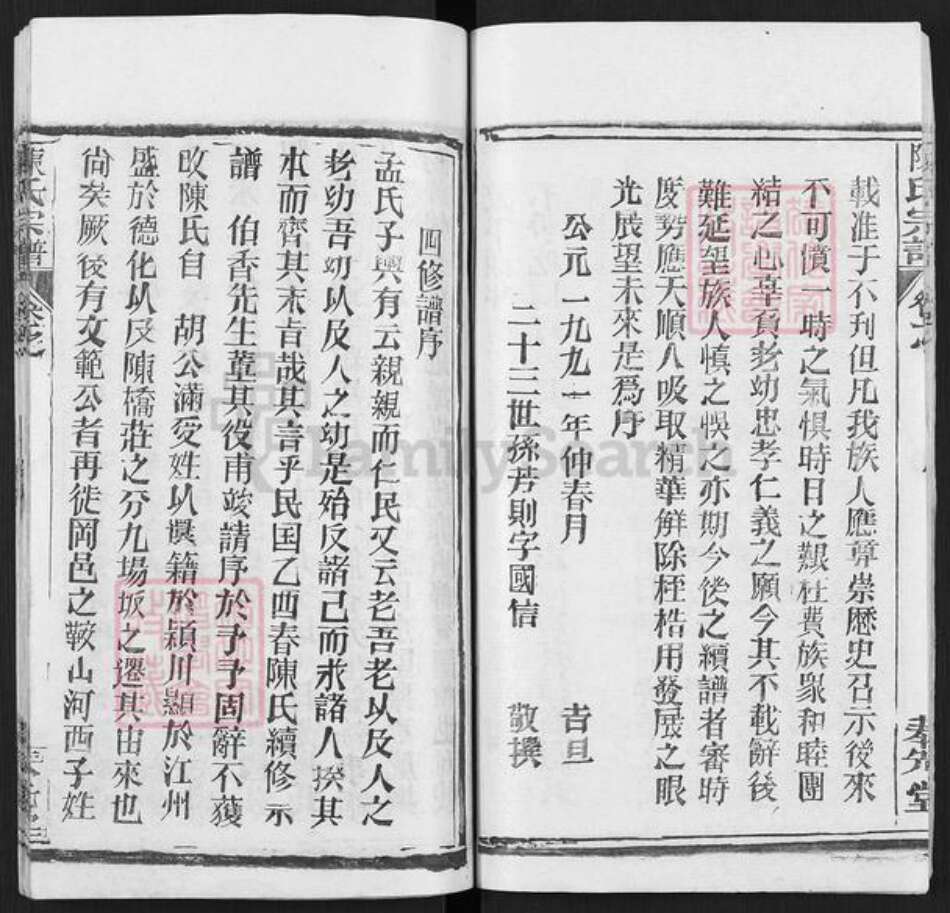 載准于不刊但凡我族人應尊崇歷史召示後來
不可僨一時之氣惧時日之艱枉費族眾和睦團
結之心辜負老幼忠孝仁義之願今其不載辭後
難延望族人慎之悞之亦期今後之續譜者審時
度勢應天順人吸取精華解除桎梏用發展之眼
光展望未來是爲序
公元一九九一年仲春月 吉旦
二十三世孫芳則字國信 敬撰
四修譜序
孟氏子輿有云親親而仁民又云老吾老以及人之
老幼吾幼以及人之幼是殆反諸己而求諸人揆其
本而齊其末旨哉其言乎民国乙酉春陳氏續修宗
譜 伯香先生董其役甫竣請序於予予固辭不獲
攷陳氏自 胡公滿受姓以來籍於潁川顯於江州
盛於德化以及陳橋莊之分九場坂之遷其由來也
尚矣厥後有文範公者再徙岡邑之鞍山河西子姓
陳氏宗譜
卷之
FamilySearch